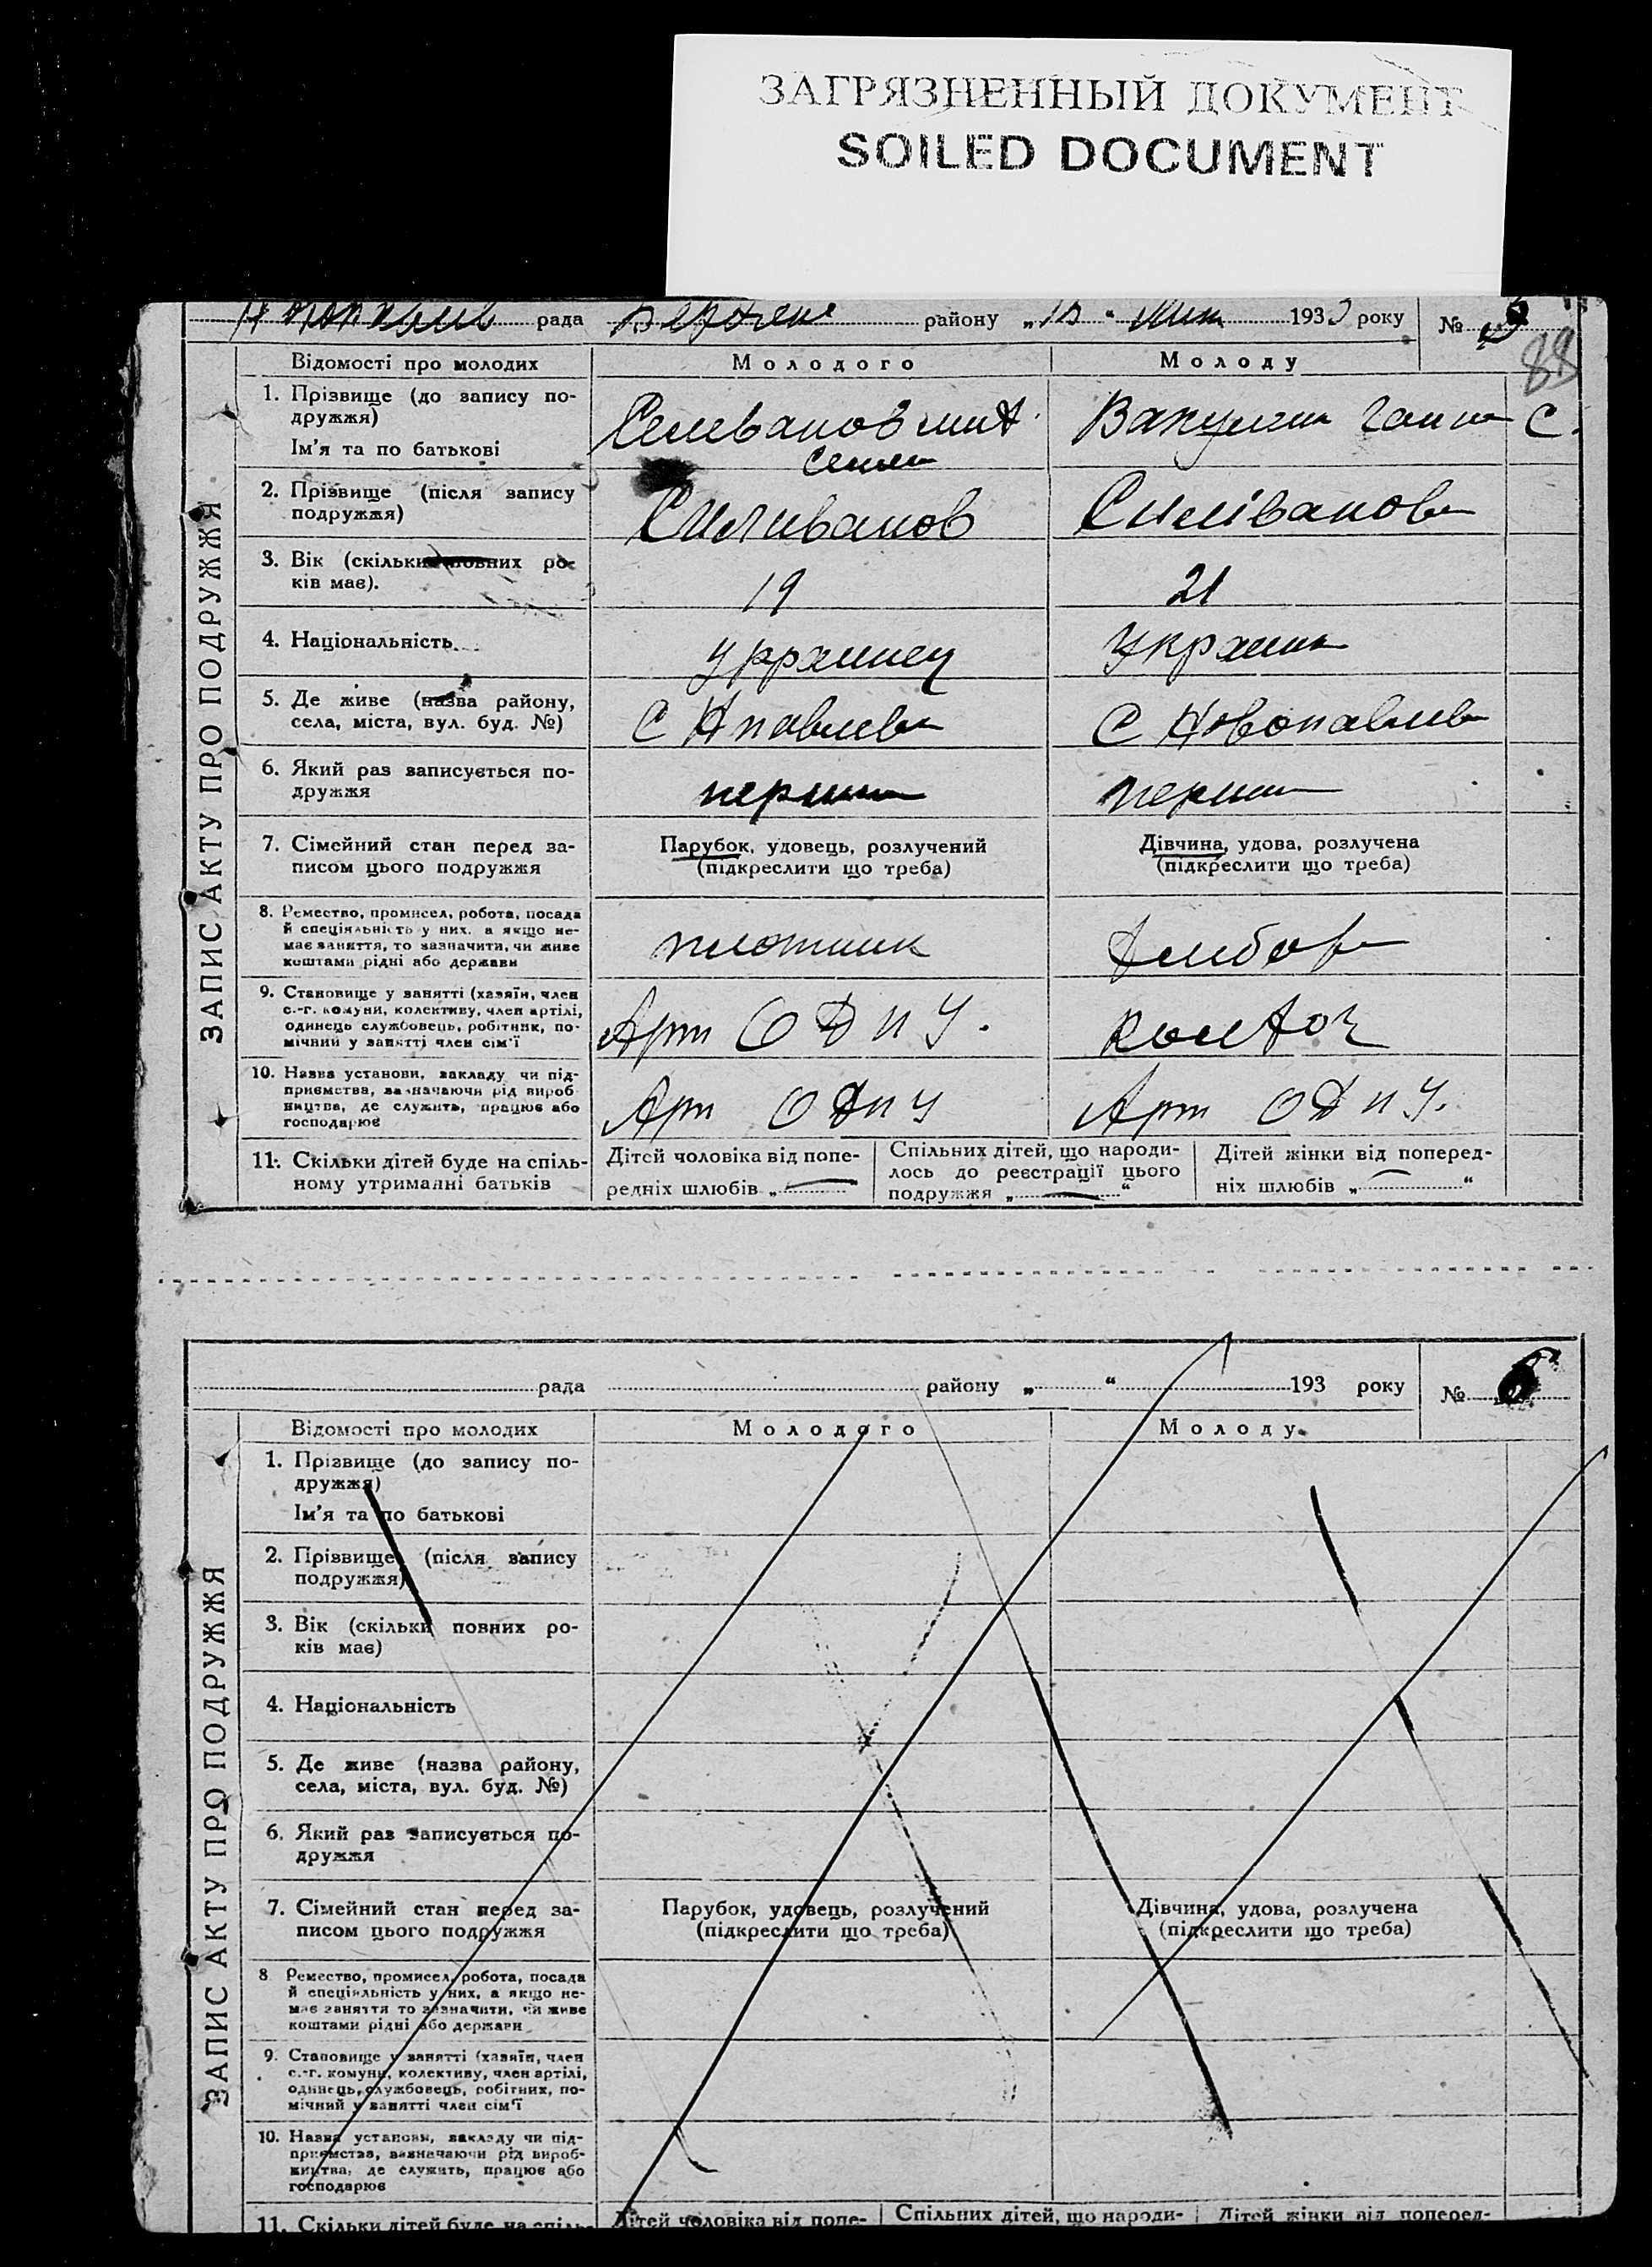 ЗАГРЯЗНЕННЫЙ ДОКУМЕНТ
SOILED DOCUMENT
рада району 193 року №
88
Відомості про молодих Молодого Молоду
1. Прізвище (до запису по-
дружжя)
Ім'я та по батькові
Селеванов Ганна С.
2. Прізвище (після запису
подружжя)
Силиванов Силіванова
3. Вік (скільки повних ро-
ків має).
19 21
4. Національність
украинец Україн
5. Де живе (назва району,
села, міста, вул. буд. №)
С Нпавлев С Новопавлев
6. Який раз записується по-
дружжя
перши перши
7. Сімейний стан перед за-
писом цього подружжя
Парубок, удовець, розлучений
(підкреслити що треба)
Дівчина, удова, розлучена
(підкреслити що треба)
8. Ремество, промисел, робота, посада
й спеціяльність у них, а якщо не-
має заняття, то зазначити, чи живе
коштами рідні або держави
плотник
9. Становище у занятті (хазяїн, член
с.-г. комуни, колективу, член артілі,
одинець службовець, робітник, по-
мічний у занятті член сім'ї
Арт
10. Назва установи, закладу чи під-
приємства, зазначаючи рід вироб
ництва, де служить, працює або
господарює
Арт Арт
11. Скільки дітей буде на спіль-
ному утриманні батьків
Дітей чоловіка від попе-
редніх шлюбів „ “
Спільних дітей, що народи-
лось до реєстрації цього
подружжя „ “
Дітей жінки від поперед-
ніх шлюбів „ “
ЗАПИС АКТУ ПРО ПОДРУЖЖЯ
рада району „ “ 193 року № 6
Відомості про молодих Молодого Молоду
1. Прізвище (до запису по-
дружжя)
Ім'я та по батькові
2. Прізвище (після запису
подружжя)
3. Вік (скільки повних ро-
ків має)
4. Національність
5. Де живе (назва району,
села, міста, вул. буд. №)
6. Який раз записується по-
дружжя
7. Сімейний стан перед за-
писом цього подружжя
Парубок, удовець, розлучений
(підкреслити що треба)
Дівчина, удова, розлучена
(підкреслити що треба)
8 Ремество, промисел, робота, посада
й спеціяльність у них, а якщо не-
має заняття то зазначити, чи живе
коштами рідні або держави
9. Становище у занятті (хазяїн, член
с.-г. комуни, колективу, член артілі,
одинець, службовець, робітник, по-
мічний у занятті член сім'ї
10. Назва установи, закладу чи під-
приємства, зазначаючи рід вироб-
ництва, де служить, працює або
господарює
11. Скільки дітей буде на спіль-
Дітей чоловіка від попе-
Спільних дітей, що народи-
Дітей жінки від поперед-
ЗАПИС АКТУ ПРО ПОДРУЖЖЯ